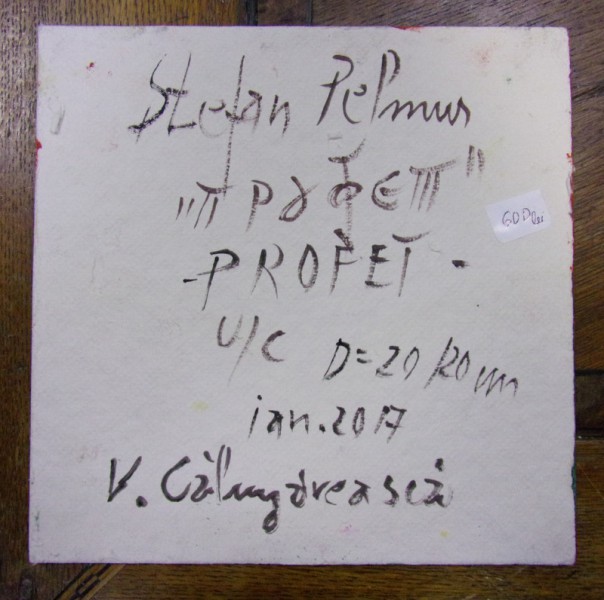 Stefan Pelmus
„ПРОФЕТ"
-PROFET-
U/C D=20/20 cm
ian. 2017
V. Călugărească
600 lei